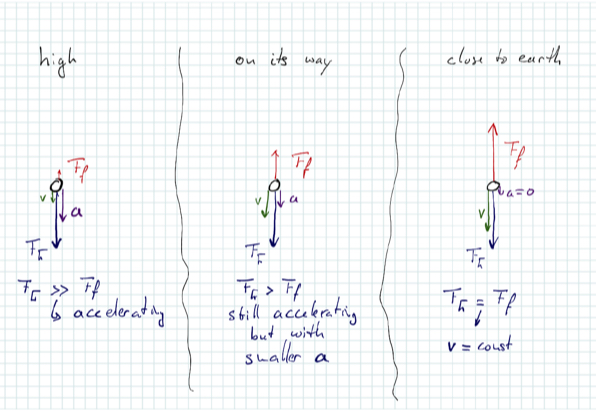 high
F_f
v
a
F_G
F_G >> F_f
↳ accelerating
on its way
F_f
v
a
F_G
F_G > F_f
still accelerating
but with
smaller a
close to earth
F_f
a=0
v
F_G
F_G = F_f
↓
v = const